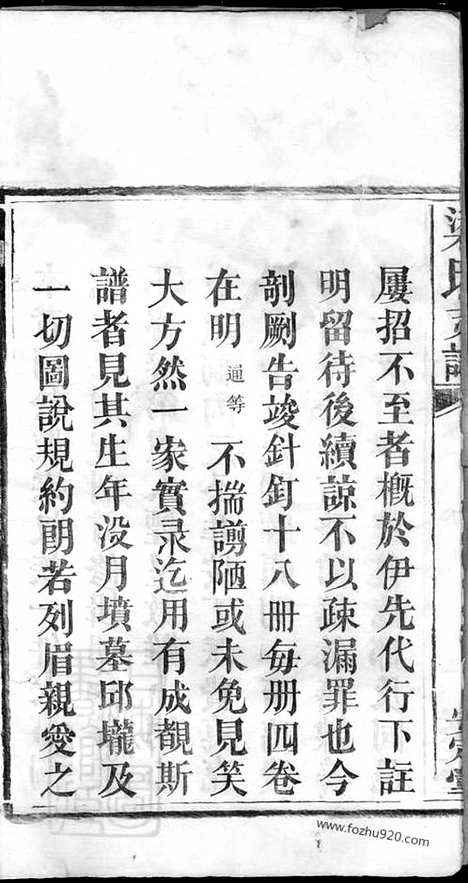 屢招不至者概於伊先代行下註
明留待後續諒不以疎漏罪也今
剞劂告竣針釘十八冊每册四卷
在明通等不揣謭陋或未免見笑
大方然一家實录迄用有成覩斯
譜者見其生年没月墳墓邱壠及
一切圖說規約朗若列眉親愛之
www.fozhu920.com